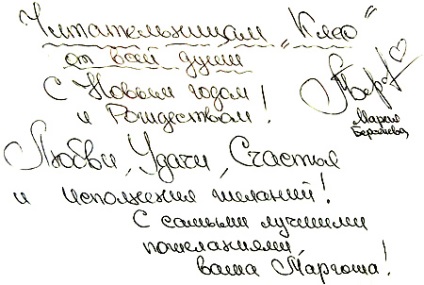 Читательницам „Клео“
от всей души
С Новым годом
и Рождеством!
Мария
Берсенева
Любви, Удачи, Счастья
и исполнения желаний!
С самыми лучшими
пожеланиями,
ваша Маргоша!